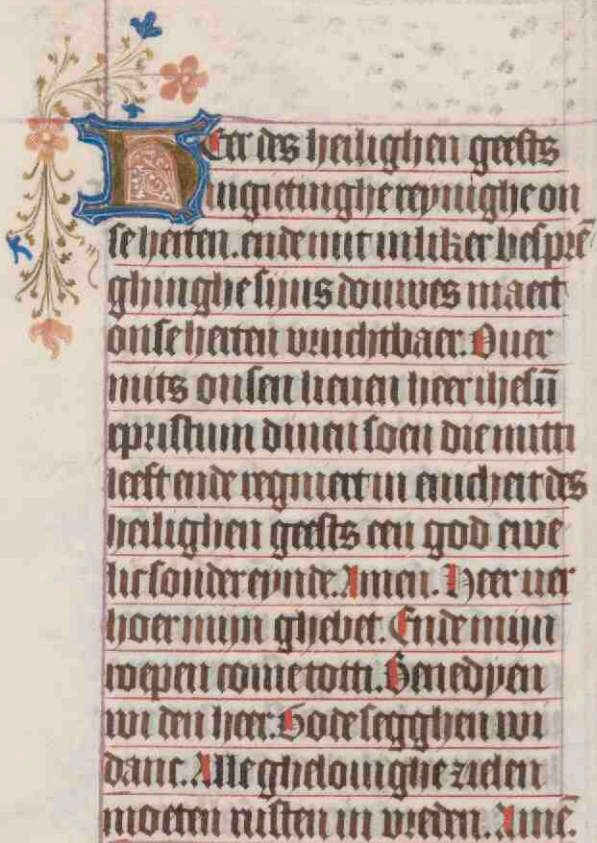 Heer des heilighen geests
ingietinghe reynighe on
se herten. ende mit inliker besprē
ghinghe sijns douwes maect
onse herten vruchtbaer. Ouer
mits onsen lieuen heer ihesū
xpristum dinen soen die mitti
leeft ende regniert in enicheit des
heilighen geests een god ewe
lic sonder eynde. Amen. Heer ver
hoer mijn ghebet. Ende mijn
roepen come totti. Benedyen
wi den heer. Gode segghen wi
danc. Alle ghelouighe zielen
moeten rusten in vreden. Amē.